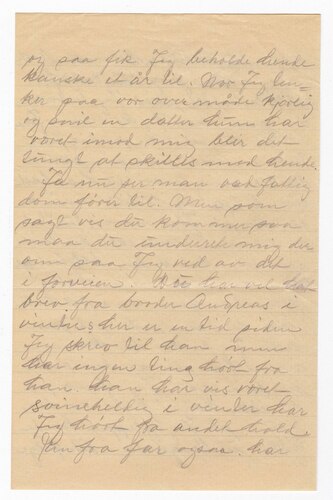 og saa fik Jeg beholde hende
kanske et år til. Nor Jeg ten=
ker paa vor over måde kjerlig
og snil en datter hun har
voret imod mig blir det
tungt at skilles med hende.
Ja nu ser man vad fattig
dom förer til. Men som
sagt vis du kommer saa
maa du underrette mig der
om saa Jeg ved av det
i forveien. Du har vel hat
brev fra broder Andreas i
vinter, her er en tid siden
Jeg skrev til han men
har ingen ting hört fra
han. han har vis voret
svineheldig i vinter har
Jeg hört fra andet hold.
fra far ogsaa. har